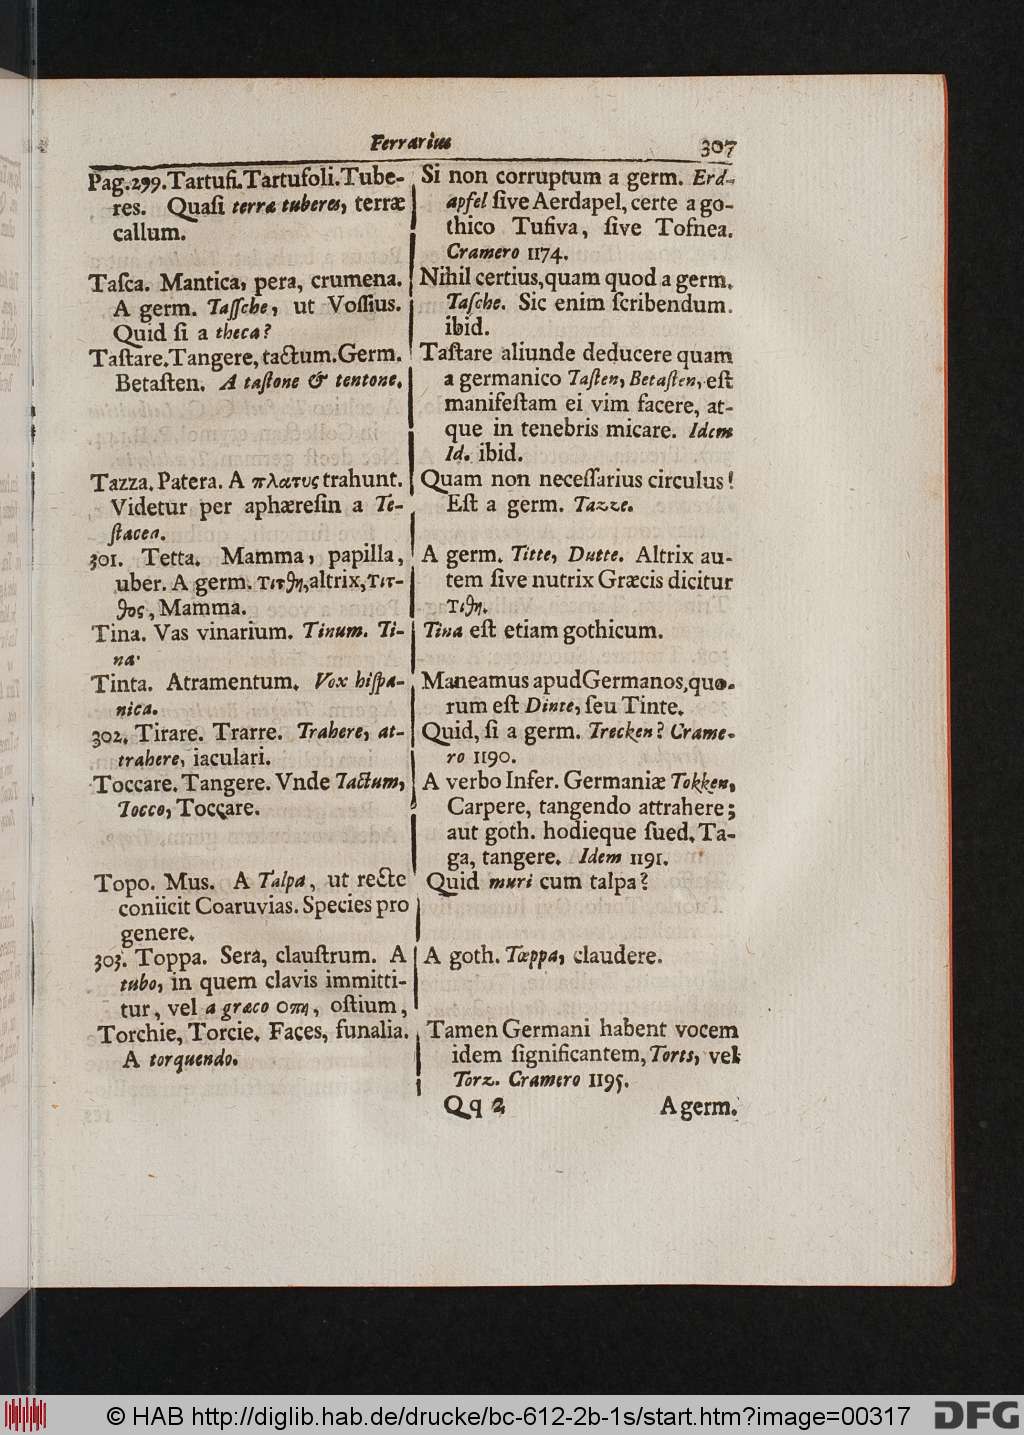 Ferrarius
307
Pag.299.Tartufi.Tartufoli.Tube-
res. Quaſi terræ tuberes, terræ
callum.
Taſca. Mantica, pera, crumena.
A germ. Taſſche, ut Voſſius.
Quid ſi a theca?
Taſtare.Tangere, tactum.Germ.
Betaſten. A taſtone & tentone.
Tazza. Patera. A πλατυς trahunt.
Videtur per aphæreſin a Te-
ſtacea.
301. Tetta. Mamma, papilla,
uber. A germ. τιτθη, altrix, τιτ-
θος, Mamma.
Tina. Vas vinarium. Tinum. Ti-
na.
Tinta. Atramentum. Vox hiſpa-
nica.
302. Tirare. Trarre. Trahere, at-
trahere, iaculari.
Toccare. Tangere. Vnde Tactum,
Tocco, Toccare.
Topo. Mus. A Talpa, ut recte
coniicit Coaruvias. Species pro
genere.
303. Toppa. Sera, clauſtrum. A
tubo, in quem clavis immitti-
tur, vel a græco οπη, oſtium,
Torchie, Torcie. Faces, funalia.
A torquendo.
Si non corruptum a germ. Erd-
apfel ſive Aerdapel, certe a go-
thico Tufiva, ſive Tofnea.
Cramero 1174.
Nihil certius, quam quod a germ.
Taſche. Sic enim ſcribendum.
ibid.
Taſtare aliunde deducere quam
a germanico Taſten, Betaſten, eſt
manifeſtam ei vim facere, at-
que in tenebris micare. Idem
Id. ibid.
Quam non neceſſarius circulus!
Eſt a germ. Tazze.
A germ. Titte, Dutte. Altrix au-
tem ſive nutrix Græcis dicitur
τιθη.
Tina eſt etiam gothicum.
Maneamus apud Germanos, quo-
rum eſt Dinte, ſeu Tinte.
Quid, ſi a germ. Trecken? Crame-
ro 1190.
A verbo Infer. Germaniæ Tokken,
Carpere, tangendo attrahere;
aut goth. hodieque ſued. Ta-
ga, tangere. Idem 1191.
Quid muri cum talpa?
A goth. Tæppa, claudere.
Tamen Germani habent vocem
idem ſignificantem, Torts, vel
Torz. Cramero 1195.
Qq 2
A germ.
© HAB http://diglib.hab.de/drucke/bc-612-2b-1s/start.htm?image=00317
DFG